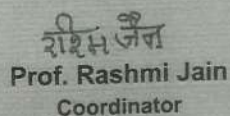 रश्मि जैन
Prof. Rashmi Jain
Coordinator